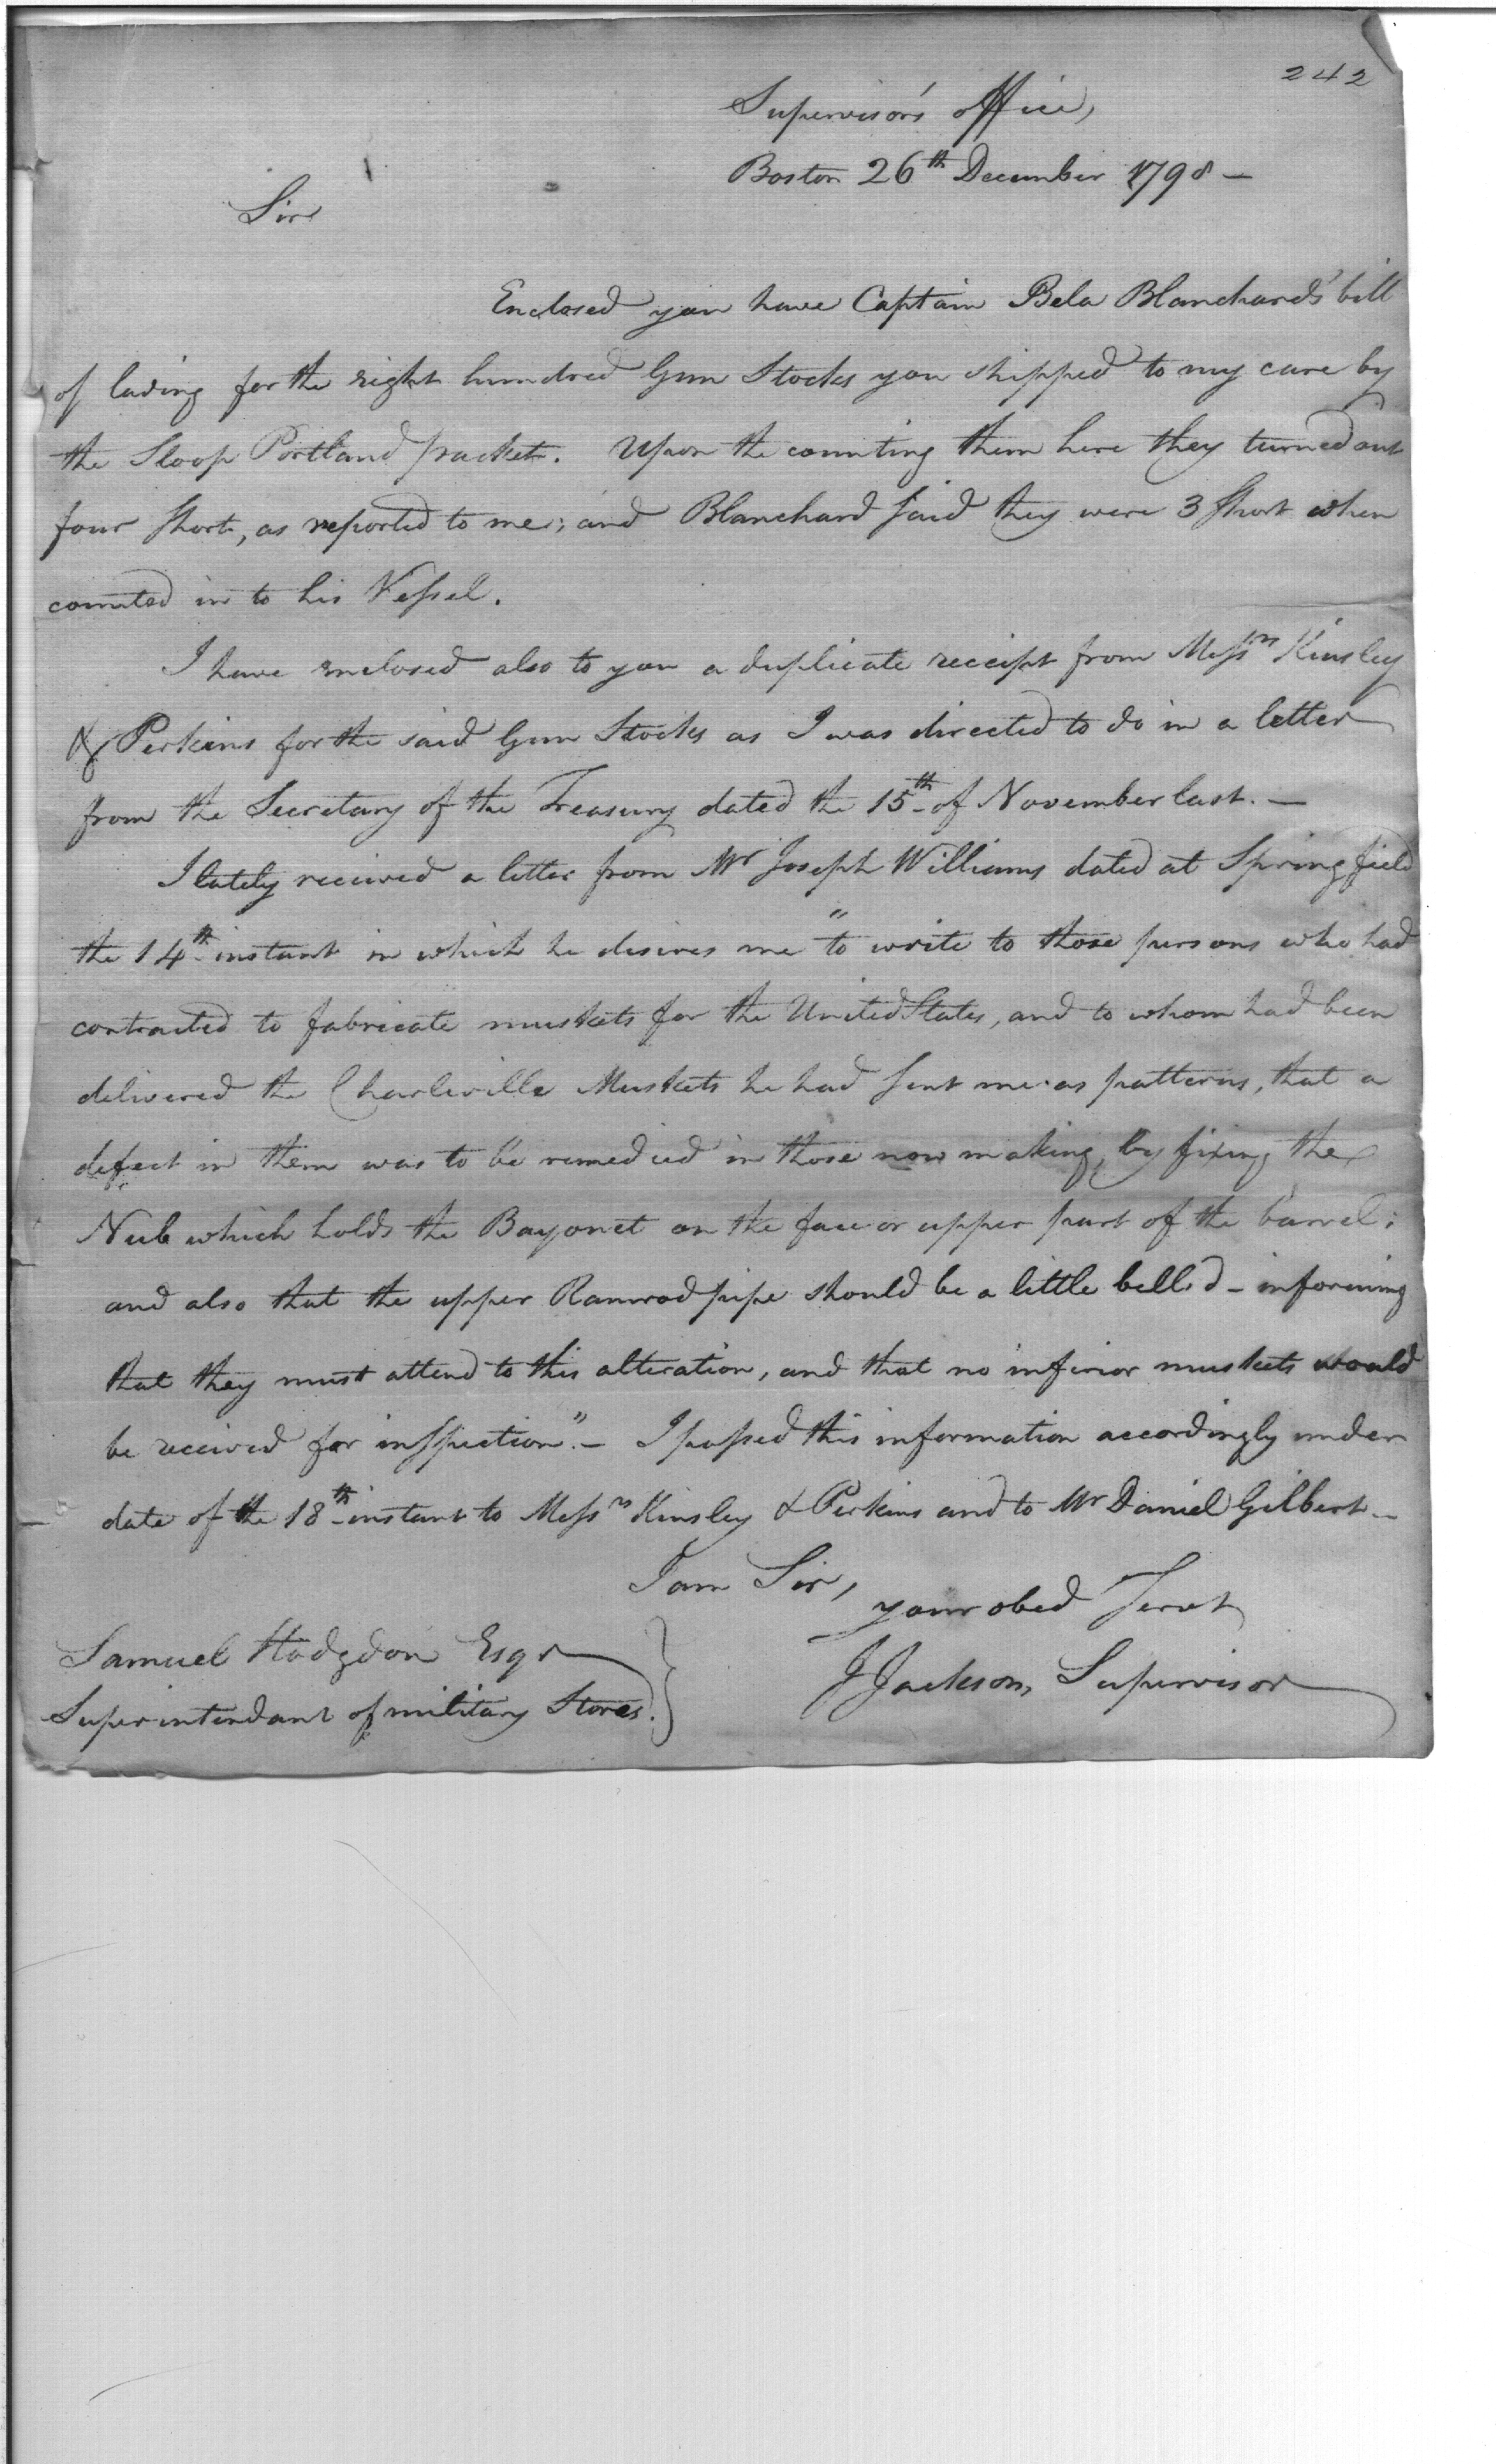 242
Supervisor's office,
Boston 26th December 1798 —
Sir
Enclosed you have Captain Bela Blanchard's bill
of lading for the eight hundred Gun Stocks you shipped to my care by
the Sloop Portland packet. Upon the counting them here they turned out
four short, as reported to me; and Blanchard said they were 3 short when
counted in to his Vessel.
I have enclosed also to you a duplicate receipt from Messrs Kinsley
& Perkins for the said Gun Stocks as I was directed to do in a letter
from the Secretary of the Treasury dated the 15th of November last. —
I lately received a letter from Mr Joseph Williams dated at Springfield
the 14th instant in which he desires me "to write to those persons who had
contracted to fabricate muskets for the United States, and to whom had been
delivered the Charleville Muskets he had sent me as patterns, that a
defect in them was to be remedied in those now making, by fixing the
Nub which holds the Bayonet on the face or upper part of the barrel;
and also that the upper Ramrod pipe should be a little bell'd — informing
that they must attend to this alteration, and that no inferior muskets would
be received for inspection." — I passed this information accordingly under
date of the 18th instant to Messrs Kinsley & Perkins and to Mr Daniel Gilbert —
I am Sir,
your obed Servt
J Jackson, Supervisor
Samuel Hodgdon Esqr
Superintendant of military Stores.